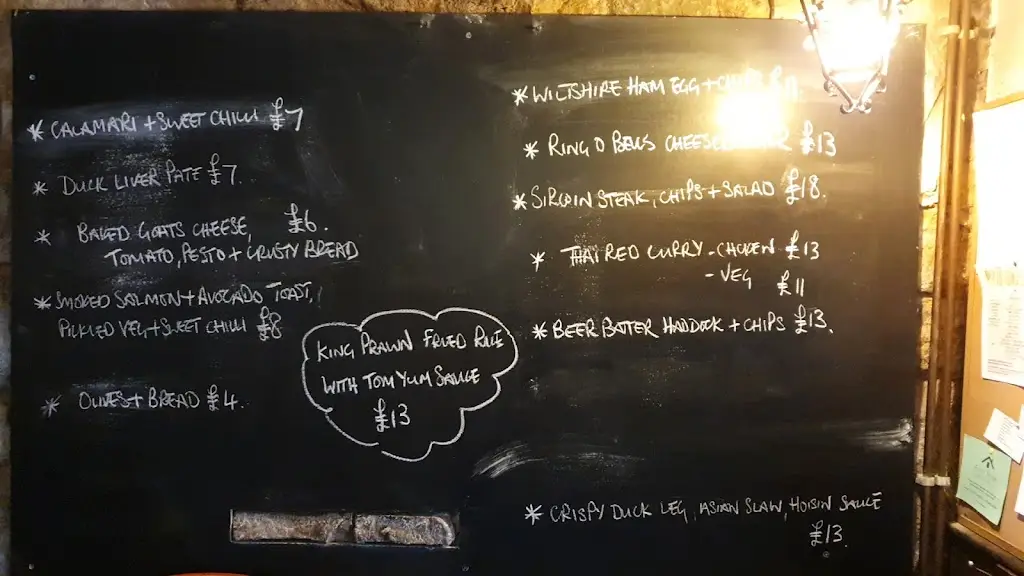 * CALAMARI + SWEET CHILLI £7
* DUCK LIVER PATE £7.
* BAKED GOATS CHEESE, £6.
TOMATO, PESTO + CRUSTY BREAD
* SMOKED SALMON + AVOCADO TOAST,
PICKLED VEG + SWEET CHILLI £8
* OLIVES + BREAD £4.
KING PRAWN FRIED RICE
WITH TOM YUM SAUCE
£13
* WILTSHIRE HAM EGG +
* RING O BELLS £13
* SIRLOIN STEAK, CHIPS + SALAD £18.
* THAI RED CURRY - CHICKEN £13
- VEG £11
* BEER BATTER HADDOCK + CHIPS £13.
* CRISPY DUCK LEG, ASIAN SLAW, HOISIN SAUCE
£13.